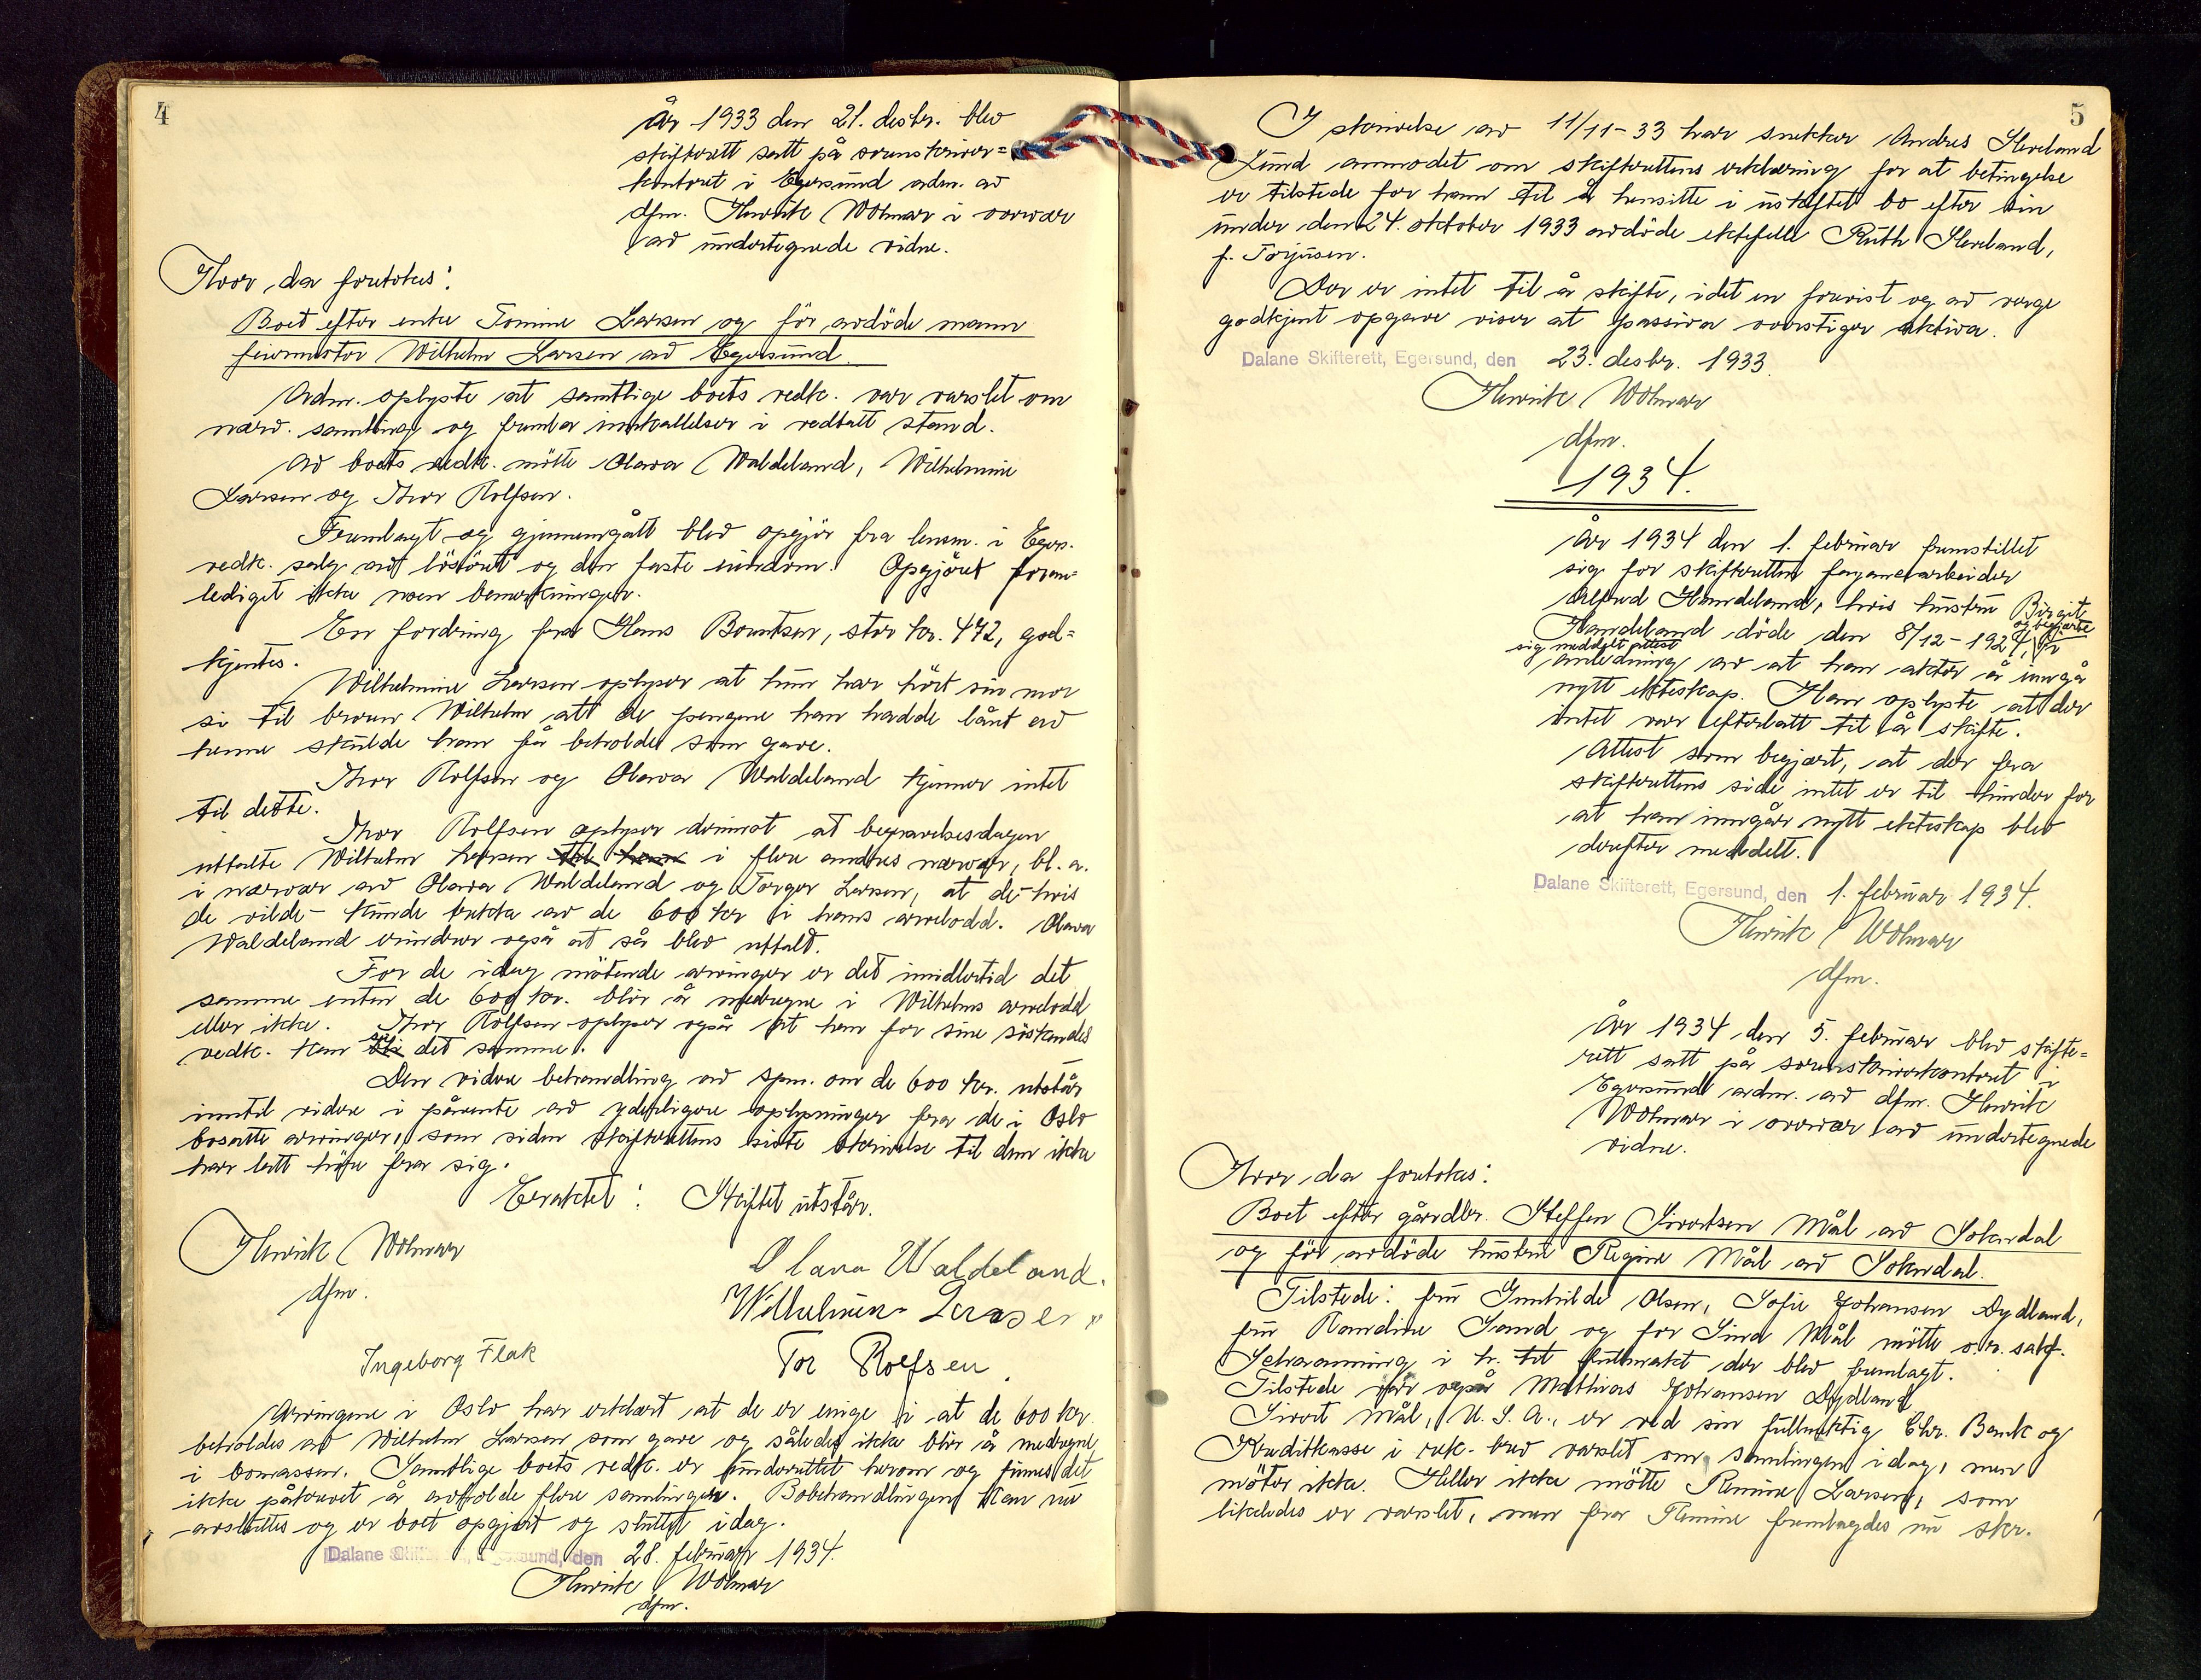 4
År 1933 den 21. desbr. blev
skifterett satt på sorenskriver=
kontoret i Egersund adm. av
dfm. Henrik Wolmar i overvær
av undertegnede vidne.
Hvor da foretokes:
Boet efter enke Tomine Larsen og før avdøde mann
feiermester Wilhelm Larsen av Egersund.
Adm. oplyste at samtlige boets vedk. var varslet om
nærv. samling og fremla innkallelser i vedtatt stand.
Av boets vedk. møtte Olava Waldeland, Wilhelmine
Larsen og Thor Rolfsen.
Fremlagt og gjennemgått blev opgjør fra lensm. i Egers.
vedk. salg av løsøret og den faste eiendom. Opgjøret foran=
lediget ikke noen bemerkninger.
En fordring fra Hans Berntsen, stor kr. 472, god=
kjentes.
Wilhelmine Larsen oplyser at hun har hørt sin mor
si til broren Wilhelm att de pengene han hadde lånt av
henne skulde han få beholde som gave.
Thor Rolfsen og Olava Waldeland kjenner intet
til dette.
Thor Rolfsen oplyser derimot at begravelsesdagen
uttalte Wilhelm Larsen til ham i flere andres nærvær, bl. a.
i nærvær av Olava Waldeland og Torger Larsen, at de - hvis
de vilde - kunde trekke av de 600 kr i hans arvelodd. Olava
Waldeland erindrer også at så blev uttalt.
For de idag møtende arvinger er det imidlertid det
samme enten de 600 kr. blir å medregne i Wilhelms arvelodd
eller ikke. Thor Rolfsen oplyser også at han for sine søskendes
vedk. kan si det samme.
Den videre behandling av spm. om de 600 kr. utstår
inntil videre i påvente av ydterligere oplysninger fra de i Oslo
bosatte arvinger, som siden skifterettens siste skrivelse til dem ikke
har latt høre fra sig.
Eraktet: Skiftet utstår.
Henrik Wolmar
dfm.
Olava Waldeland.
Wilhelmine Larsen
Ingeborg Flak
Tor Rolfsen.
Arvingene i Oslo har erklært at de er enige i at de 600 kr.
beholdes av Wilhelm Larsen som gave og således ikke blir å medregne
i bomassen. Samtlige boets vedk. er underrettet herom og finnes det
ikke påkrevet å avholde flere samlinger. Bobehandlingen kan nu
avsluttes og er boet opgjort og sluttet idag.
Dalane Skifterett, Egersund, den 28. februar 1934.
Henrik Wolmar
dfm.
5
I skrivelse av 11/11-33 har snekker Andreas Hereland
Lund anmodet om skifterettens erklæring for at betingelse
er tilstede for ham til å hensitte i uskiftet bo efter sin
under den 24. oktober 1933 avdøde ektefelle Ruth Hereland,
f. Torjusen.
Der er intet til å skifte, idet en forevist og av verge
godkjent opgave viser at passiva overstiger aktiva.
Dalane Skifterett, Egersund, den 23. desbr. 1933.
Henrik Wolmar
dfm.
1934.
År 1934 den 1. februar fremstillet
sig for skifteretten fayancearbeider
Alfred Handeland, hvis hustru Birgit
Handeland døde den 8/12-1927, og begjærte
sig meddelt attest i
anledning av at han akter å inngå
nytt ekteskap. Han oplyste at der
intet var efterlatt til å skifte.
Attest som begjært, at der fra
skifterettens side intet er til hinder for
at han inngår nytt ekteskap blev
derefter meddelt.
Dalane Skifterett, Egersund, den 1. februar 1934.
Henrik Wolmar
dfm.
År 1934 den 5. februar blev skifte=
rett satt på sorenskriverkontoret i
Egersund adm. av dfm. Henrik
Wolmar i overvær av undertegnede
vidne.
Hvor da foretokes:
Boet efter gårdbr. Steffen Sivertsen Mål av Sokndal
og før avdøde hustru Regine Mål av Sokndal.
Tilstede: fru Gunhilde Olsen, Sofie Johansen Dydland,
fru Randine Sand og for Sina Mål møtte o.r. sakf.
Schavanning i h. til fullmakt der blev fremlagt.
Tilstede var også Mathias Johansen Dydland
Sivert Mål, U. S. A., er ved sin fullmektig Chr. Bank og
Kreditkasse i rek. brev varslet om samlingen idag, men
møter ikke. Heller ikke møtte Ramine Larsen, som
likeledes er varslet, men fra Ramine fremlagdes nu skr.